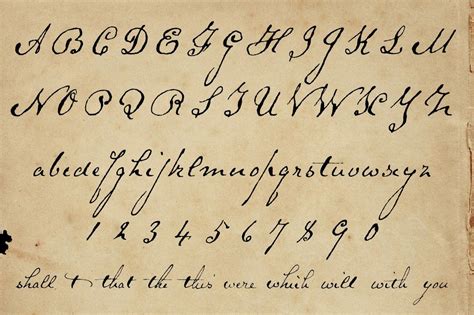 A B C D E F G H I J K L M
N O P Q R S T U V W X Y Z
abcdefghijklmnopqrstuvwxyz
1 2 3 4 5 6 7 8 9 0
shall & that the this were which will with you